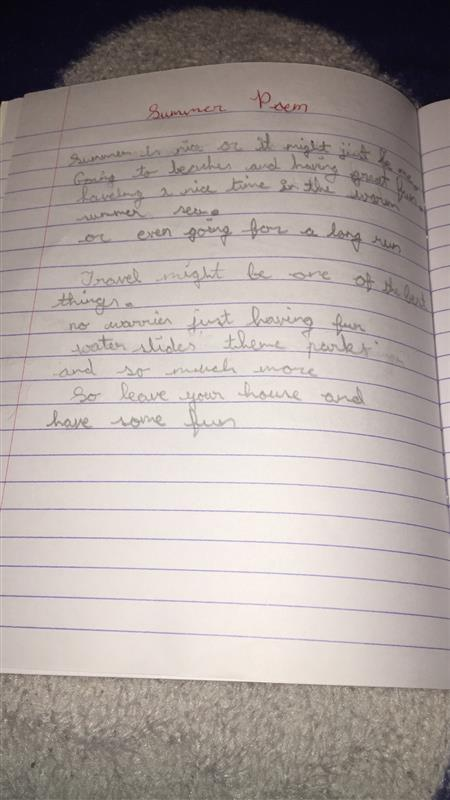 Summer Poem
Summer Is nice or it might just be me.
Going to beaches and having great fun.
haveing a nice time in the warm
summer sea.
or even going for a long run
Travel might be one of the best
things.
no worries just having fun
water slides theme parks
and so much more
So leave your house and
have some fun